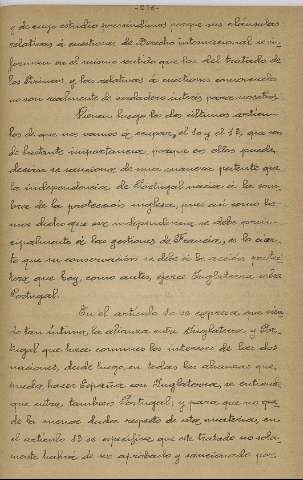 -218-
y de cuyo estudio prescindimos porque sus cláusulas
relativas á cuestiones de Derecho internacional se in-
forman en el mismo sentido que las del tratado de
los Pirineos, y las relativas á cuestiones comerciales
no son realmente de verdadero interés para nosotros.
Vienen luego los dos últimos artícu-
los de que nos vamos á ocupar, el 10 y el 12, que son
de bastante importancia porque en ellos puede
decirse se sanciona de una manera patente que
la independencia de Portugal nacía á la som-
bra de la protección inglesa, pues así como he-
mos dicho que esa independencia se debe princi-
palmente á las gestiones de Francia, es lo cier-
to que su conservación se debe á la acción protec-
tora que hoy, como antes, ejerce Inglaterra sobre
Portugal.
En el artículo 10 se expresa que sien-
do tan íntima la alianza entre Inglaterra y Por-
tugal que hace comunes los intereses de las dos
naciones, desde luego, en todas las alianzas que
pueda hacer España con Inglaterra, se entiende
que entra también Portugal, y para que no que-
de la menor duda respecto de esta materia, en
el artículo 12 se especifica que este tratado no sola-
mente habrá de ser aprobado y sancionado por